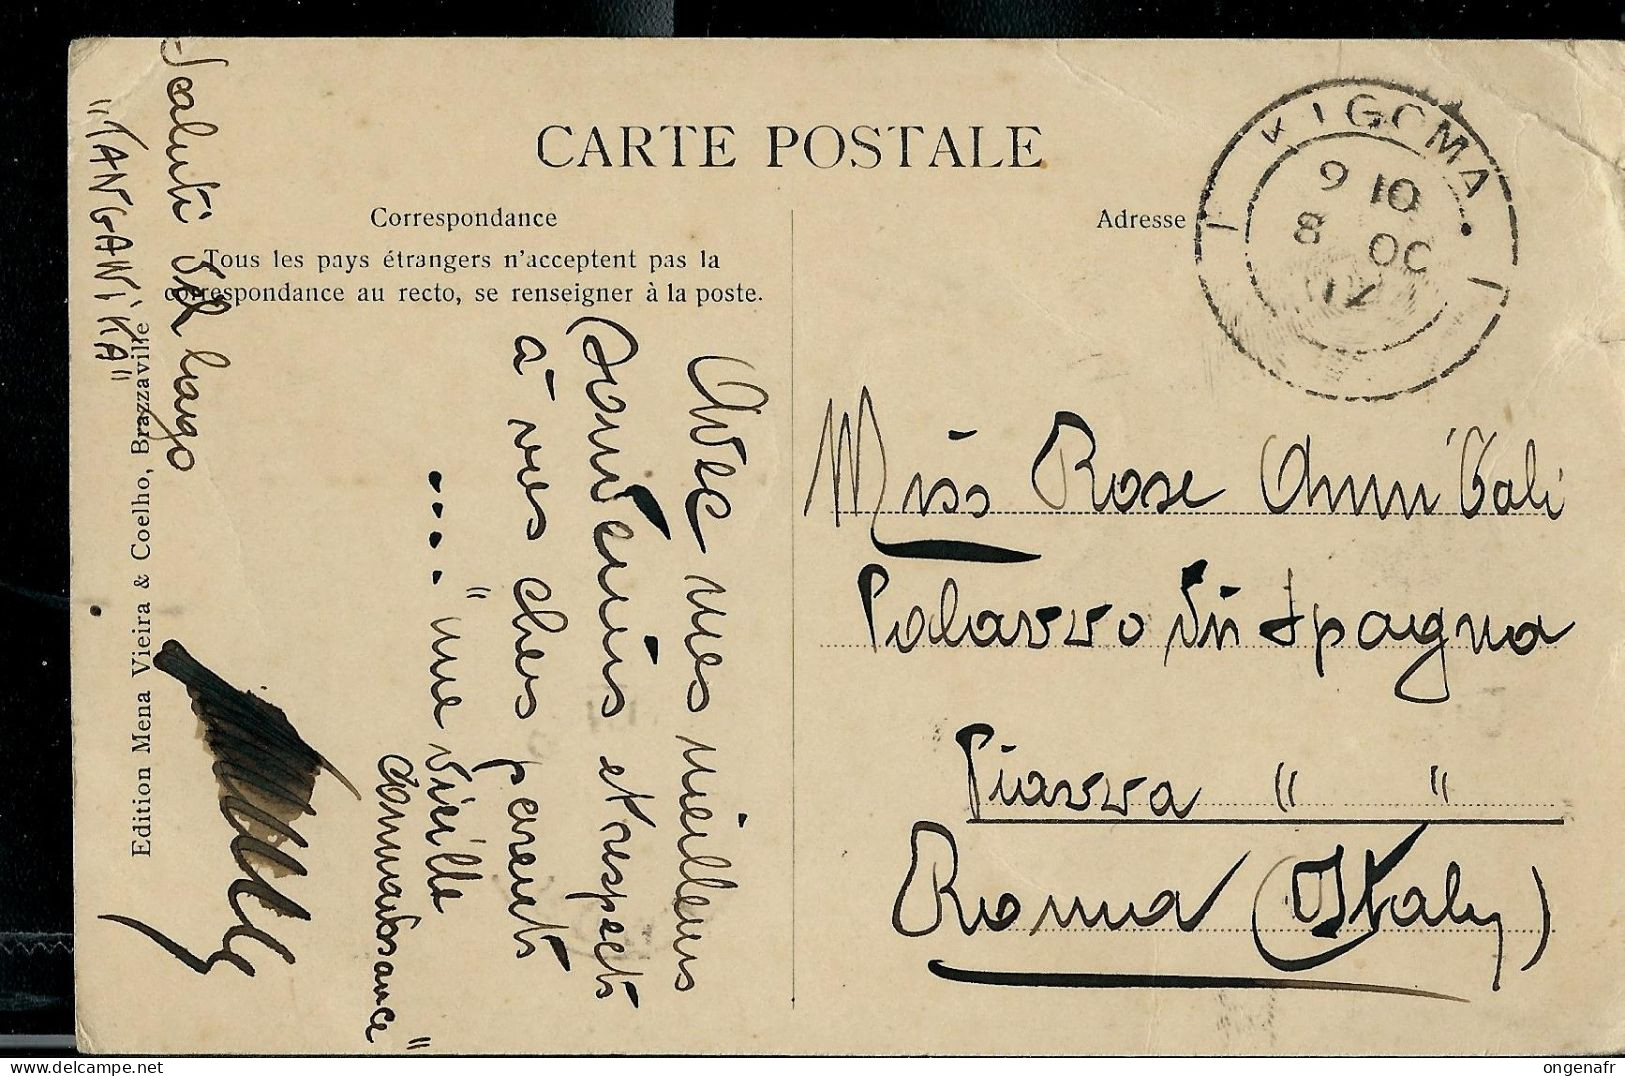 CARTE POSTALE
Correspondance
Tous les pays étrangers n'acceptent pas la
correspondance au recto, se renseigner à la poste.
Adresse
KIGOMA
9 10
8 OC
Edition Mena Vieira & Coelho, Brazzaville
Saluti del Lago
"TANGANiKA"
Avec mes meilleurs
souvenirs et respects
à vos chers parents
... "une vieille
connaissance"
Miss Rose
Palazzo di Spagna
Piazza " "
Roma (Italy)
delcampe.net
ongenafr